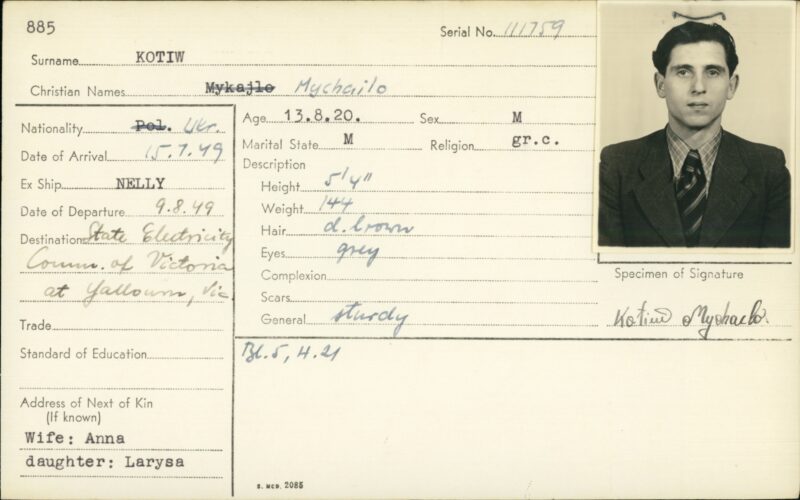 885
Serial No. 111759
Surname KOTIW
Christian Names Mykajlo Mychailo
Nationality Pol. Ukr.
Date of Arrival 15.7.49
Ex Ship NELLY
Date of Departure 9.8.49
Destination State Electricity
Comm. of Victoria
at Yallourn, Vic
Trade
Standard of Education
Address of Next of Kin
(If known)
Wife: Anna
daughter: Larysa
Age 13.8.20. Sex M
Marital State M Religion gr.c.
Description
Height 5'4"
Weight 144
Hair d. brown
Eyes grey
Complexion
Scars
General sturdy
Bl. 5, H. 21
S. MCD. 2085
Specimen of Signature
Kotiw Mychailo.